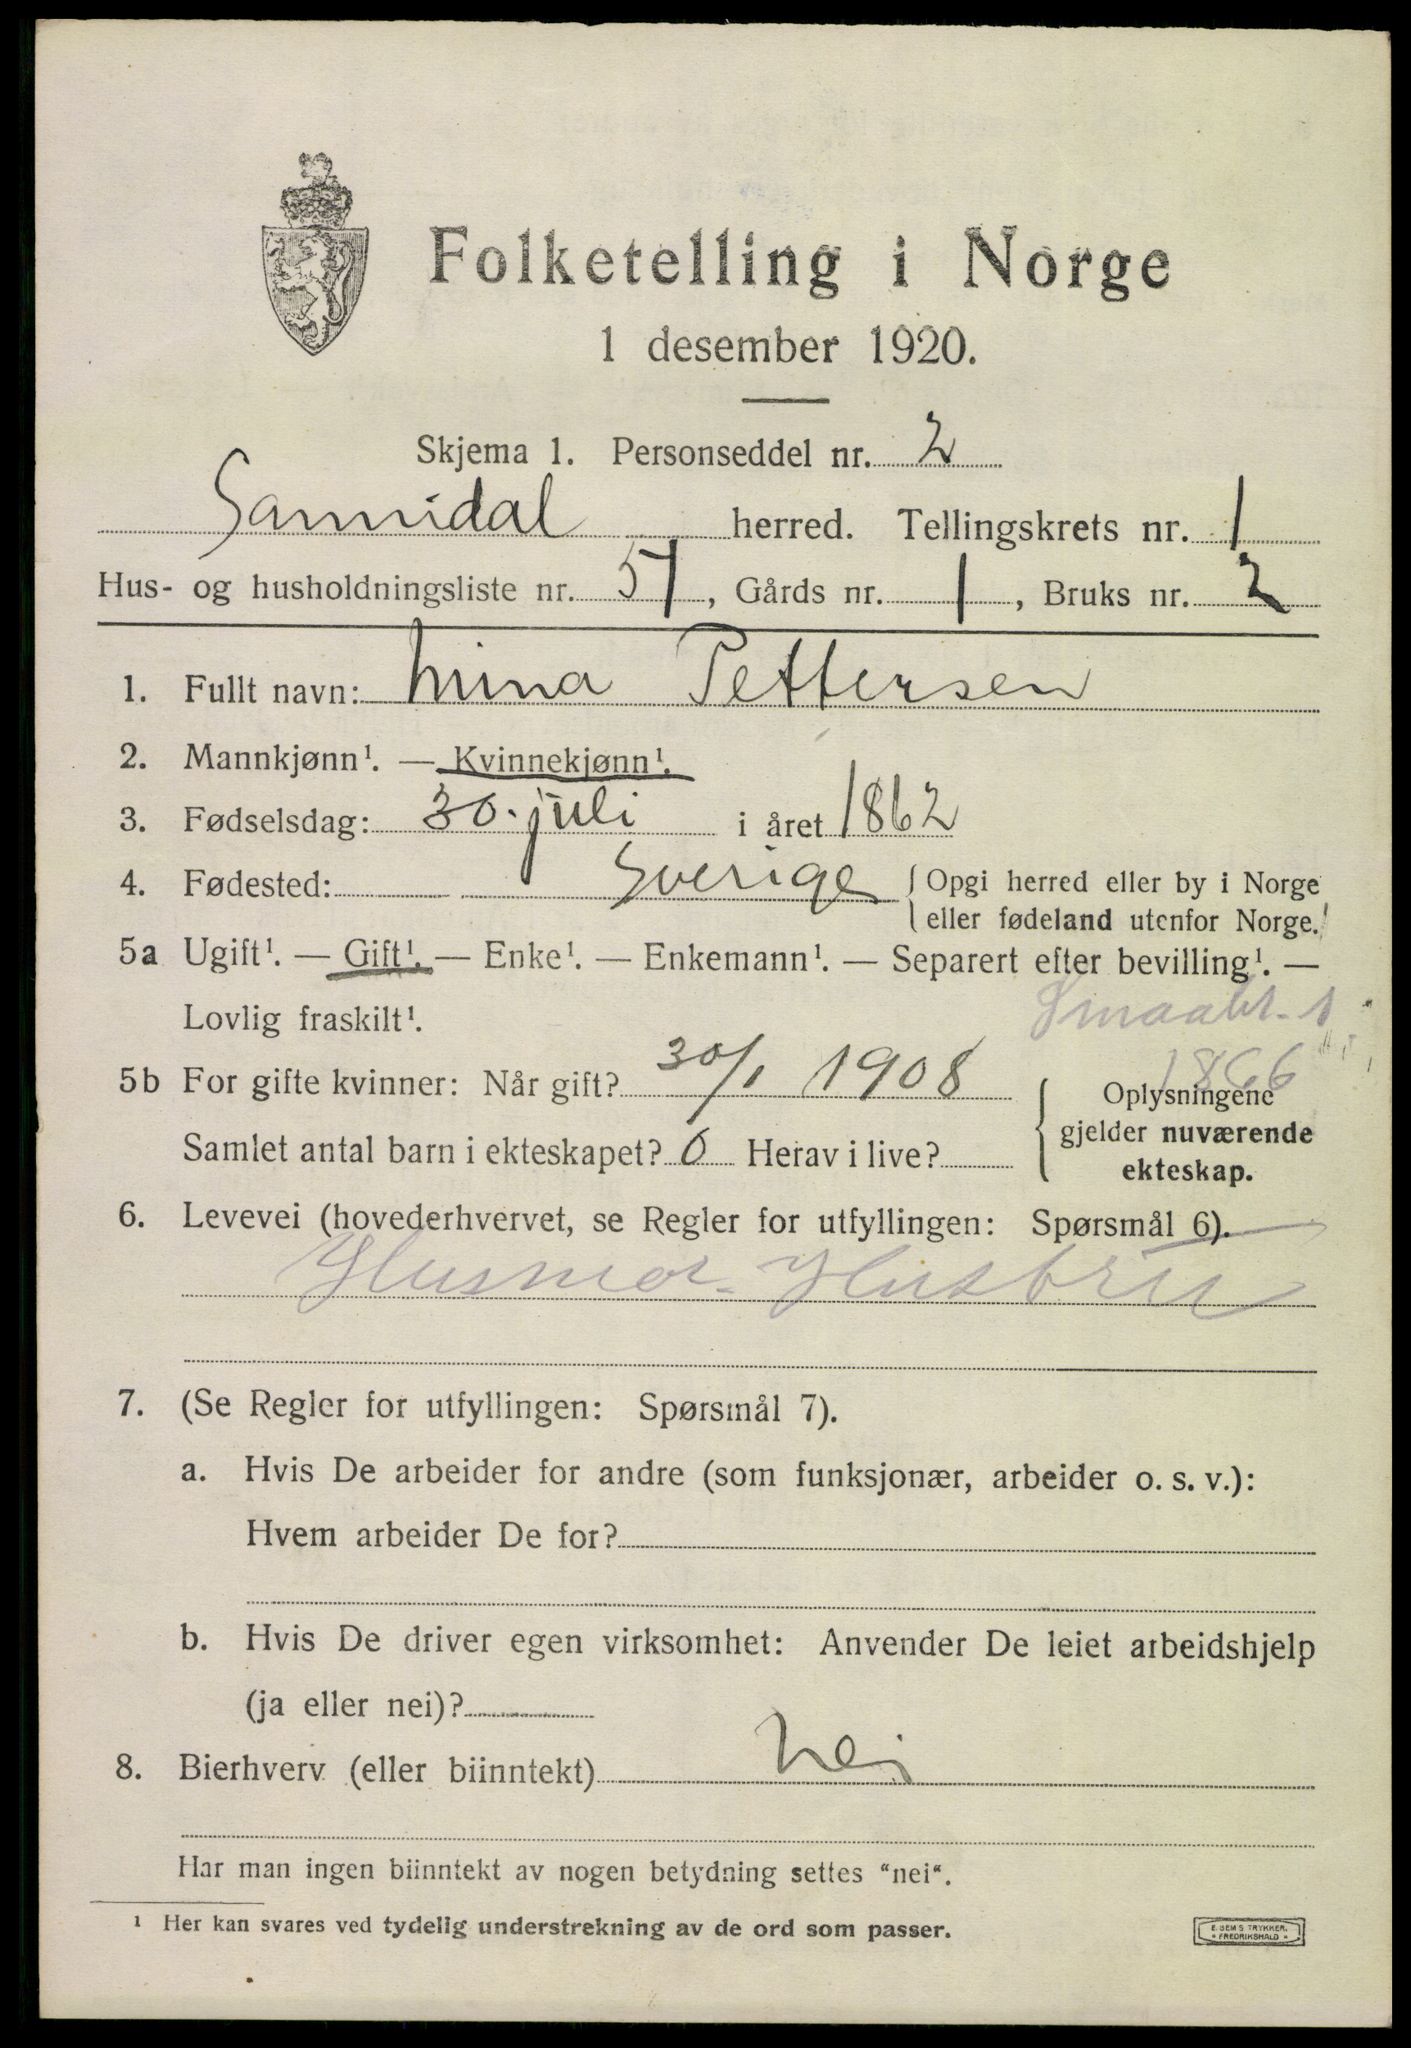 Folketelling i Norge
1 desember 1920.
Skjema 1. Personseddel nr. 2
Sannidal herred. Tellingskrets nr. 1
Hus- og husholdningsliste nr. 51, Gårds nr. 1, Bruks nr. 2
1. Fullt navn: Mina Pettersen
2. Mannkjønn¹. — Kvinnekjønn¹.
3. Fødselsdag: 30. juli i året 1862
4. Fødested: Sverige { Opgi herred eller by i Norge
eller fødeland utenfor Norge.
5a Ugift¹. — Gift¹. — Enke¹. — Enkemann¹. — Separert efter bevilling¹. —
Lovlig fraskilt¹.
1866
5b For gifte kvinner: Når gift? 30/1 1908
Samlet antal barn i ekteskapet? 0 Herav i live?
{ Oplysningene
gjelder nuværende
ekteskap.
6. Levevei (hovederhvervet, se Regler for utfyllingen: Spørsmål 6).
Husmor. Hustru
7. (Se Regler for utfyllingen: Spørsmål 7).
a. Hvis De arbeider for andre (som funksjonær, arbeider o. s. v.):
Hvem arbeider De for?
b. Hvis De driver egen virksomhet: Anvender De leiet arbeidshjelp
(ja eller nei)?
8. Bierhverv (eller biinntekt) Nei
Har man ingen biinntekt av nogen betydning settes "nei".
¹ Her kan svares ved tydelig understrekning av de ord som passer.
E. SEM'S TRYKKER.
* FREDRIKSHALD *